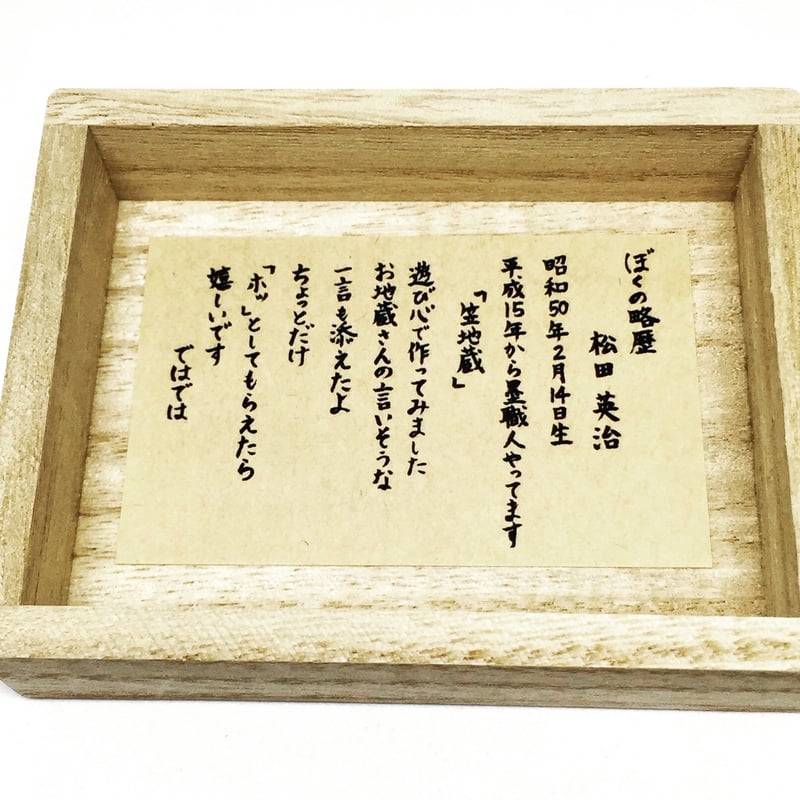 ぼくの略歴
松田 英治
昭和50年2月14日生
平成15年から畳職人やってます
「笙地蔵」
遊び心で作ってみました
お地蔵さんの言いそうな
一言も添えたよ
ちょっとだけ
「ホッ」としてもらえたら
嬉しいです
ではでは